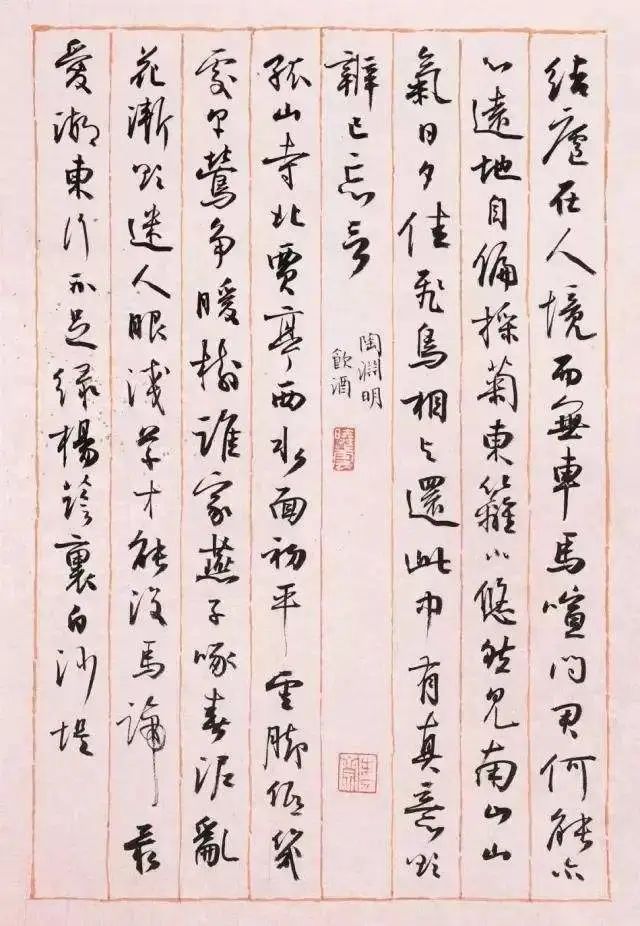 結廬在人境而無車馬喧問君何能尔
心遠地自偏採菊東籬下悠然見南山山
氣日夕佳飛鳥相与還此中有真意欲
辨已忘言
陶淵明
飲酒
孤山寺北賈亭西水面初平雲腳低幾
處早鶯爭暖樹誰家燕子啄春泥亂
花漸欲迷人眼淺草才能沒馬蹄最
愛湖東行不足綠楊蔭裏白沙堤